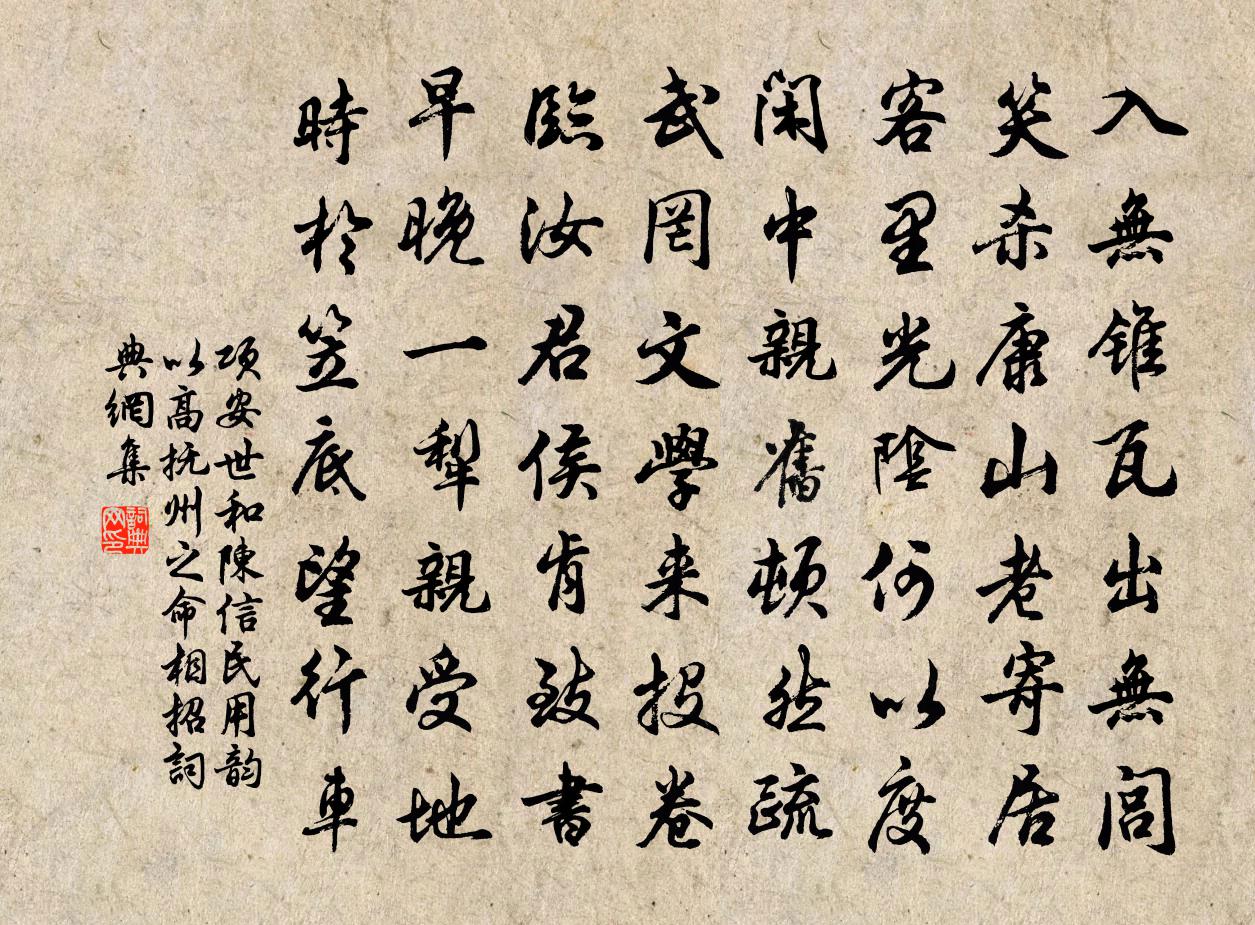 入無錐瓦出無閭
笑杀庸山老寄居
客里光陰何以度
閑中親舊頓然疏
武罔文學来投卷
臨汝君侯肯致書
早晚一犁親受地
時於笠底望行車
项安世和陳信民用韵
以高抚州之命相招詞
典網集
詞典网印